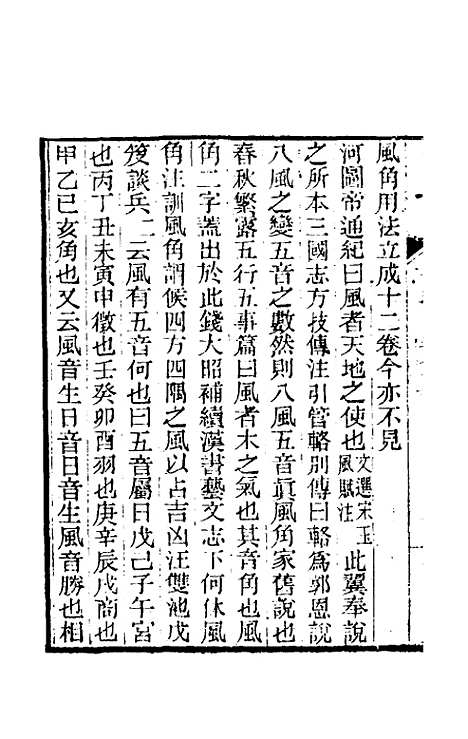 風角用法立成十二卷今亦不見
河圖帝通紀曰風者天地之使也文選宋玉風賦注此翼奉說
之所本三國志方技傳注引管輅別傳曰輅爲郭恩說
八風之變五音之數然則八風五音眞風角家舊說也
春秋繁露五行五事篇曰風者木之氣也其音角也風
角二字蓋出於此錢大昭補續漢書藝文志下何休風
角注訓風角謂候四方四隅之風以占吉凶汪雙池戊
笈談兵二云風有五音何也曰五音屬日戊己子午宮
也丙丁丑未寅申徵也壬癸卯酉羽也庚辛辰戌商也
甲乙巳亥角也又云風音生日音日音生風音勝也相